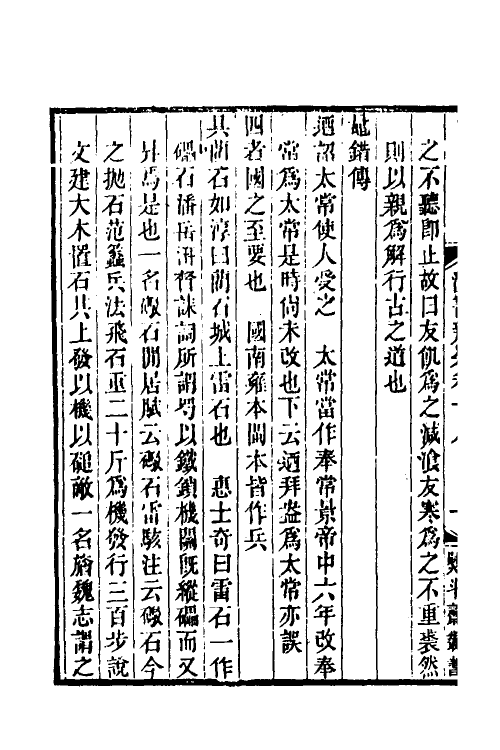 之不聽卽止故曰友飢爲之減飡友寒爲之不重裘然
則以親爲解行古之道也
鼂錯傳
迺詔太常使人受之　太常當作奉常景帝中六年改奉
常爲太常是時尙未改也下云迺拜盎爲太常亦誤
四者國之至要也　國南雍本閩本皆作兵
具藺石如淳曰藺石城上雷石也　惠士奇曰雷石一作
礌石潘岳汧督誄詞所謂罸以鐵鎖機關旣縱礌而又
升焉是也一名礮石閒居賦云礮石雷駭注云礮石今
之抛石范蠡兵法飛石重二十斤爲機發行三百步說
文建大木置石其上發以機以磓敵一名旝魏志謂之